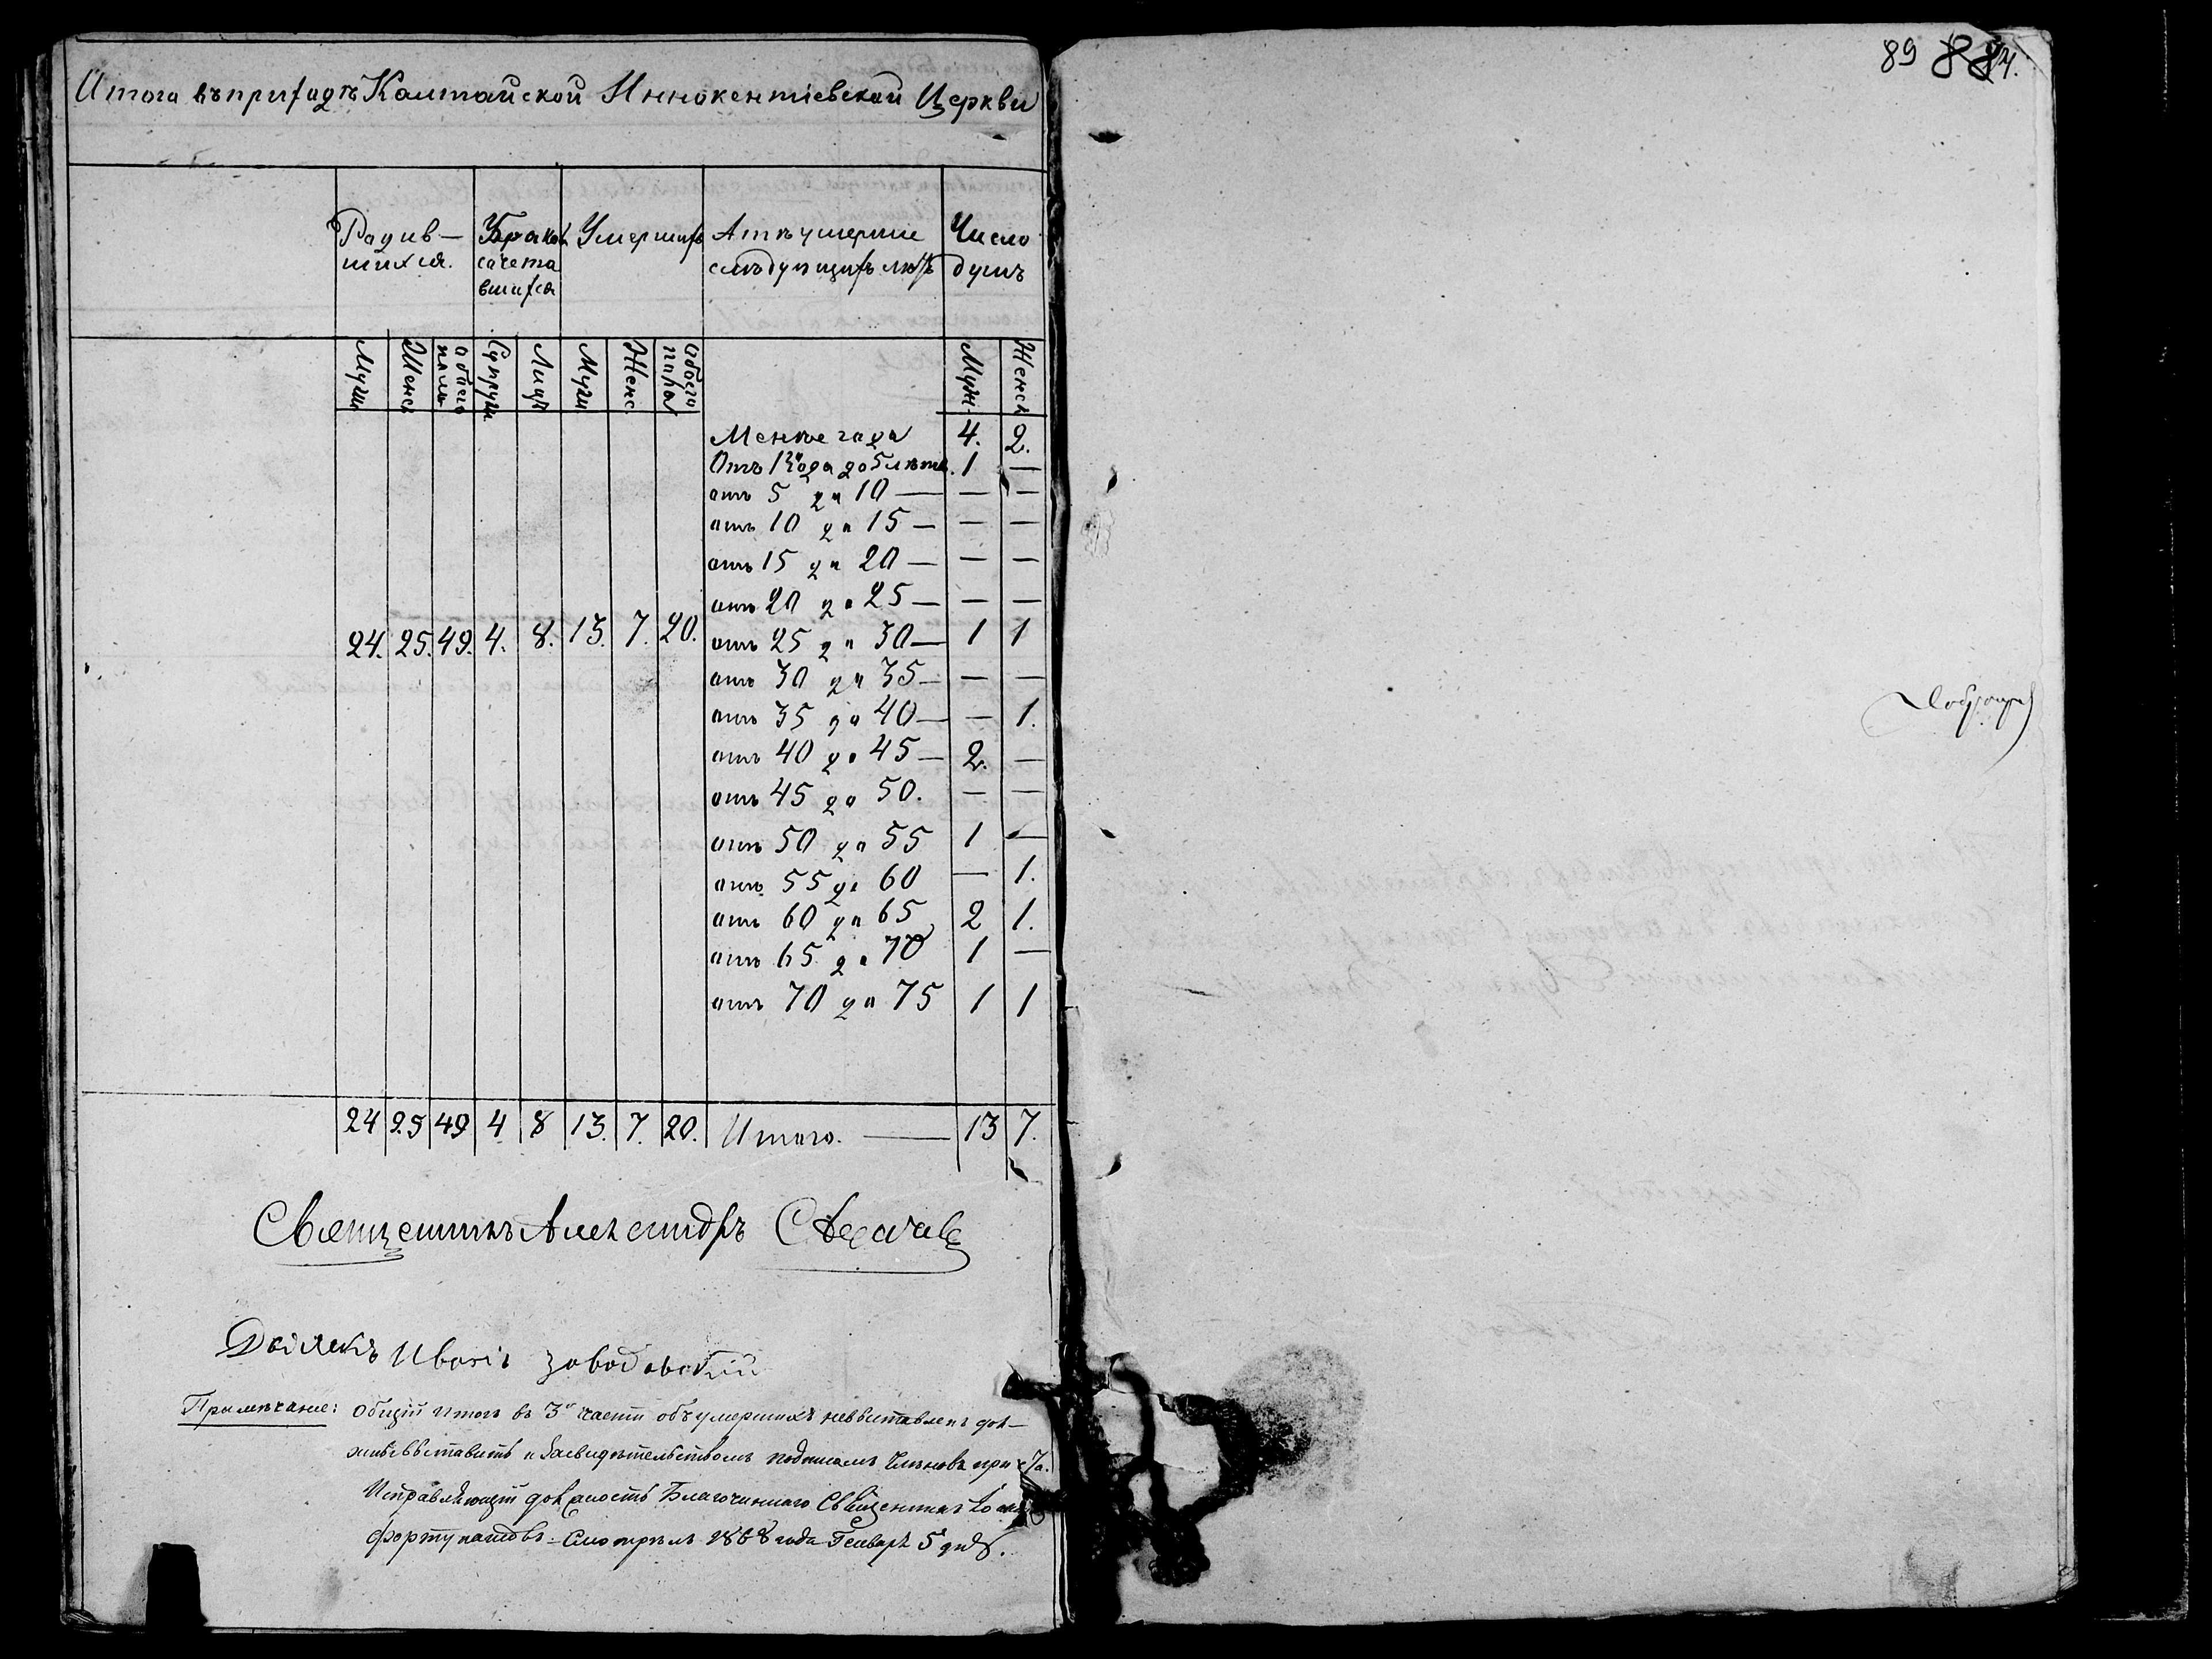 Итого въ приходѣ Калтайской Иннокентіевской Церкви
Родив— Бракосочета Умершихъ А тѣ умерши Число
шихся. вшихся слѣдующихъ лѣтъ душъ
Мужи Женск обоего полу Супруги Лицъ Мужи Женс. обоего пола Муж. Женск
Менѣе года 4. 2.
Отъ 1го года до 5 лѣтъ. 1 —
отъ 5 до 10 — — —
отъ 10 до 15 — — —
отъ 15 до 20 — — —
отъ 20 до 25 — — —
24. 25. 49. 4. 8. 13. 7. 20. отъ 25 до 30 — 1 1
отъ 30 до 35 — — —
отъ 35 до 40 — — 1.
отъ 40 до 45 — 2. —
отъ 45 до 50. — —
отъ 50 до 55 1 —
отъ 55 до 60 — 1.
отъ 60 до 65 2 1.
отъ 65 до 70 1 —
отъ 70 до 75 1 1
24 25 49 4 8 13. 7. 20. Итого. — 13 7.
Священникъ Александръ
Дьячекъ Иванъ Заводовскій
Примѣчание: Общій итогъ въ 3й части объ умершихъ невыставленъ дол—
жны выставить и засвидѣтельствомъ подписомъ Членовъ причта.
Исправляющій должность Благочиннаго Священникъ
Фортунатовъ. Смотрѣлъ 1868 года Генваря 5 дня.
89 88